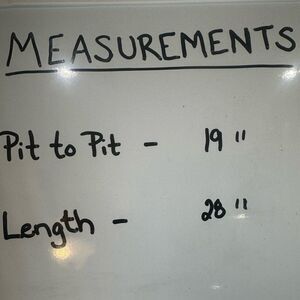 MEASUREMENTS
Pit to Pit - 19"
Length - 28"